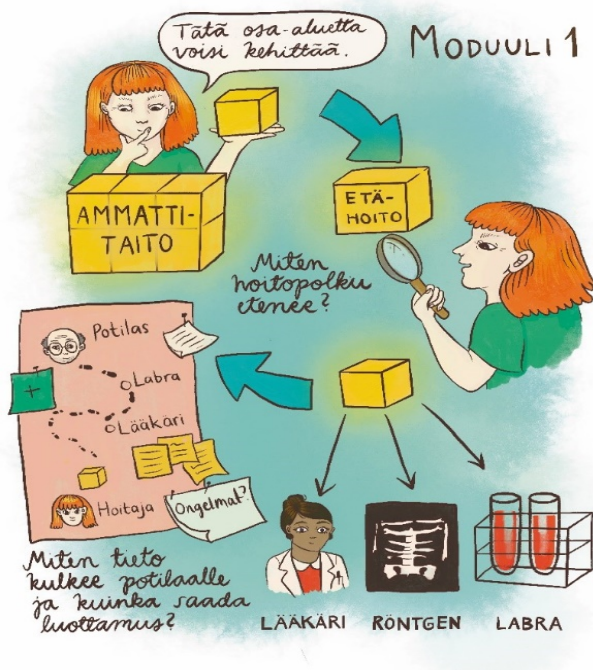 Tätä osa-aluetta
voisi kehittää.
MODUULI 1
AMMATTI-
TAITO
ETÄ-
HOITO
Miten
hoitopolku
etenee?
Potilas
Labra
Lääkäri
Hoitaja
Ongelmat?
Miten tieto
kulkee potilaalle
ja kuinka saada
luottamus?
LÄÄKÄRI
RÖNTGEN
LABRA